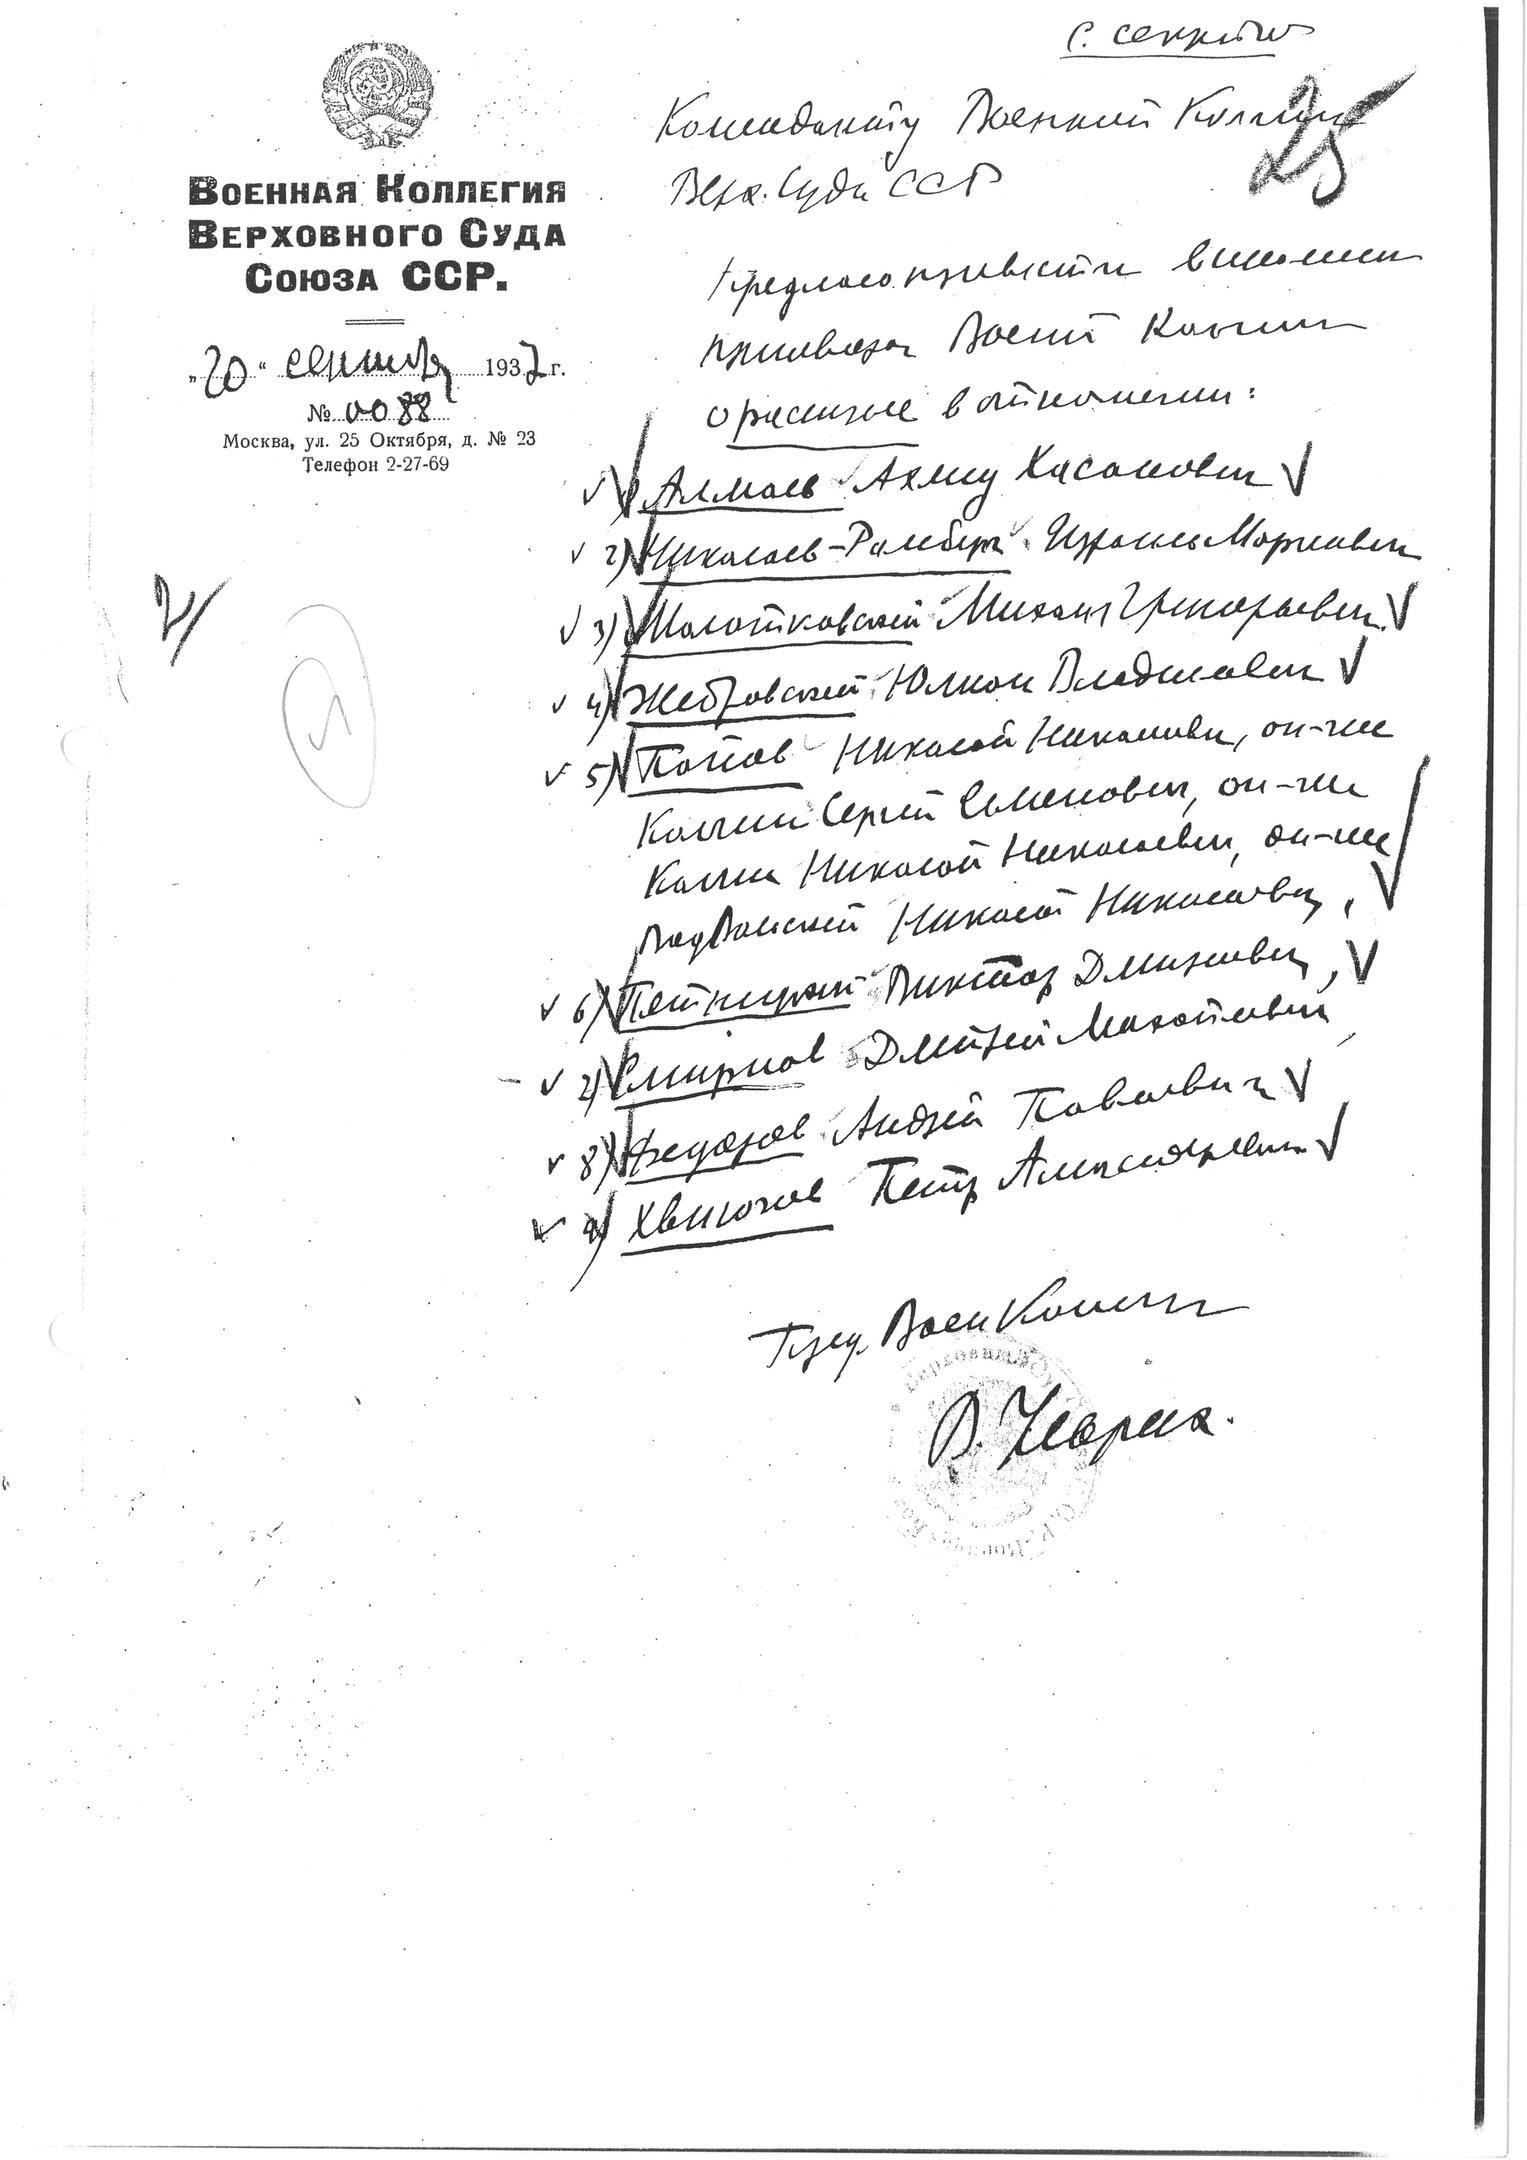 с. секретно
ВОЕННАЯ КОЛЛЕГИЯ
ВЕРХОВНОГО СУДА
СОЮЗА ССР.
„20“ сентября 1937 г.
№ 0088
Москва, ул. 25 Октября, д. № 23
Телефон 2-27-69
25
Коменданту Военной Коллегии
Верх. Суда СССР
Предлагаю привести в исполнение
приговора Военной Коллегии
о расстреле в отношении:
1) Алмаев Ахмед Хасанович
2) Николаев-Рамберг Израиль Маркович
3) Молотковский Михаил Григорьевич
4) Жебровский Юлиан Владиславович
5) Попов Николай Николаевич, он-же
Сергей Семенович, он-же
Николай Николаевич, он-же
Николай Николаевич,
6) Виктор Дмитриевич,
7) Смирнов Дмитрий
8) Федоров Андрей Павлович
9) Хвилючев Петр Александрович
Пред. ВоенКоллегии
В. Ульрих.